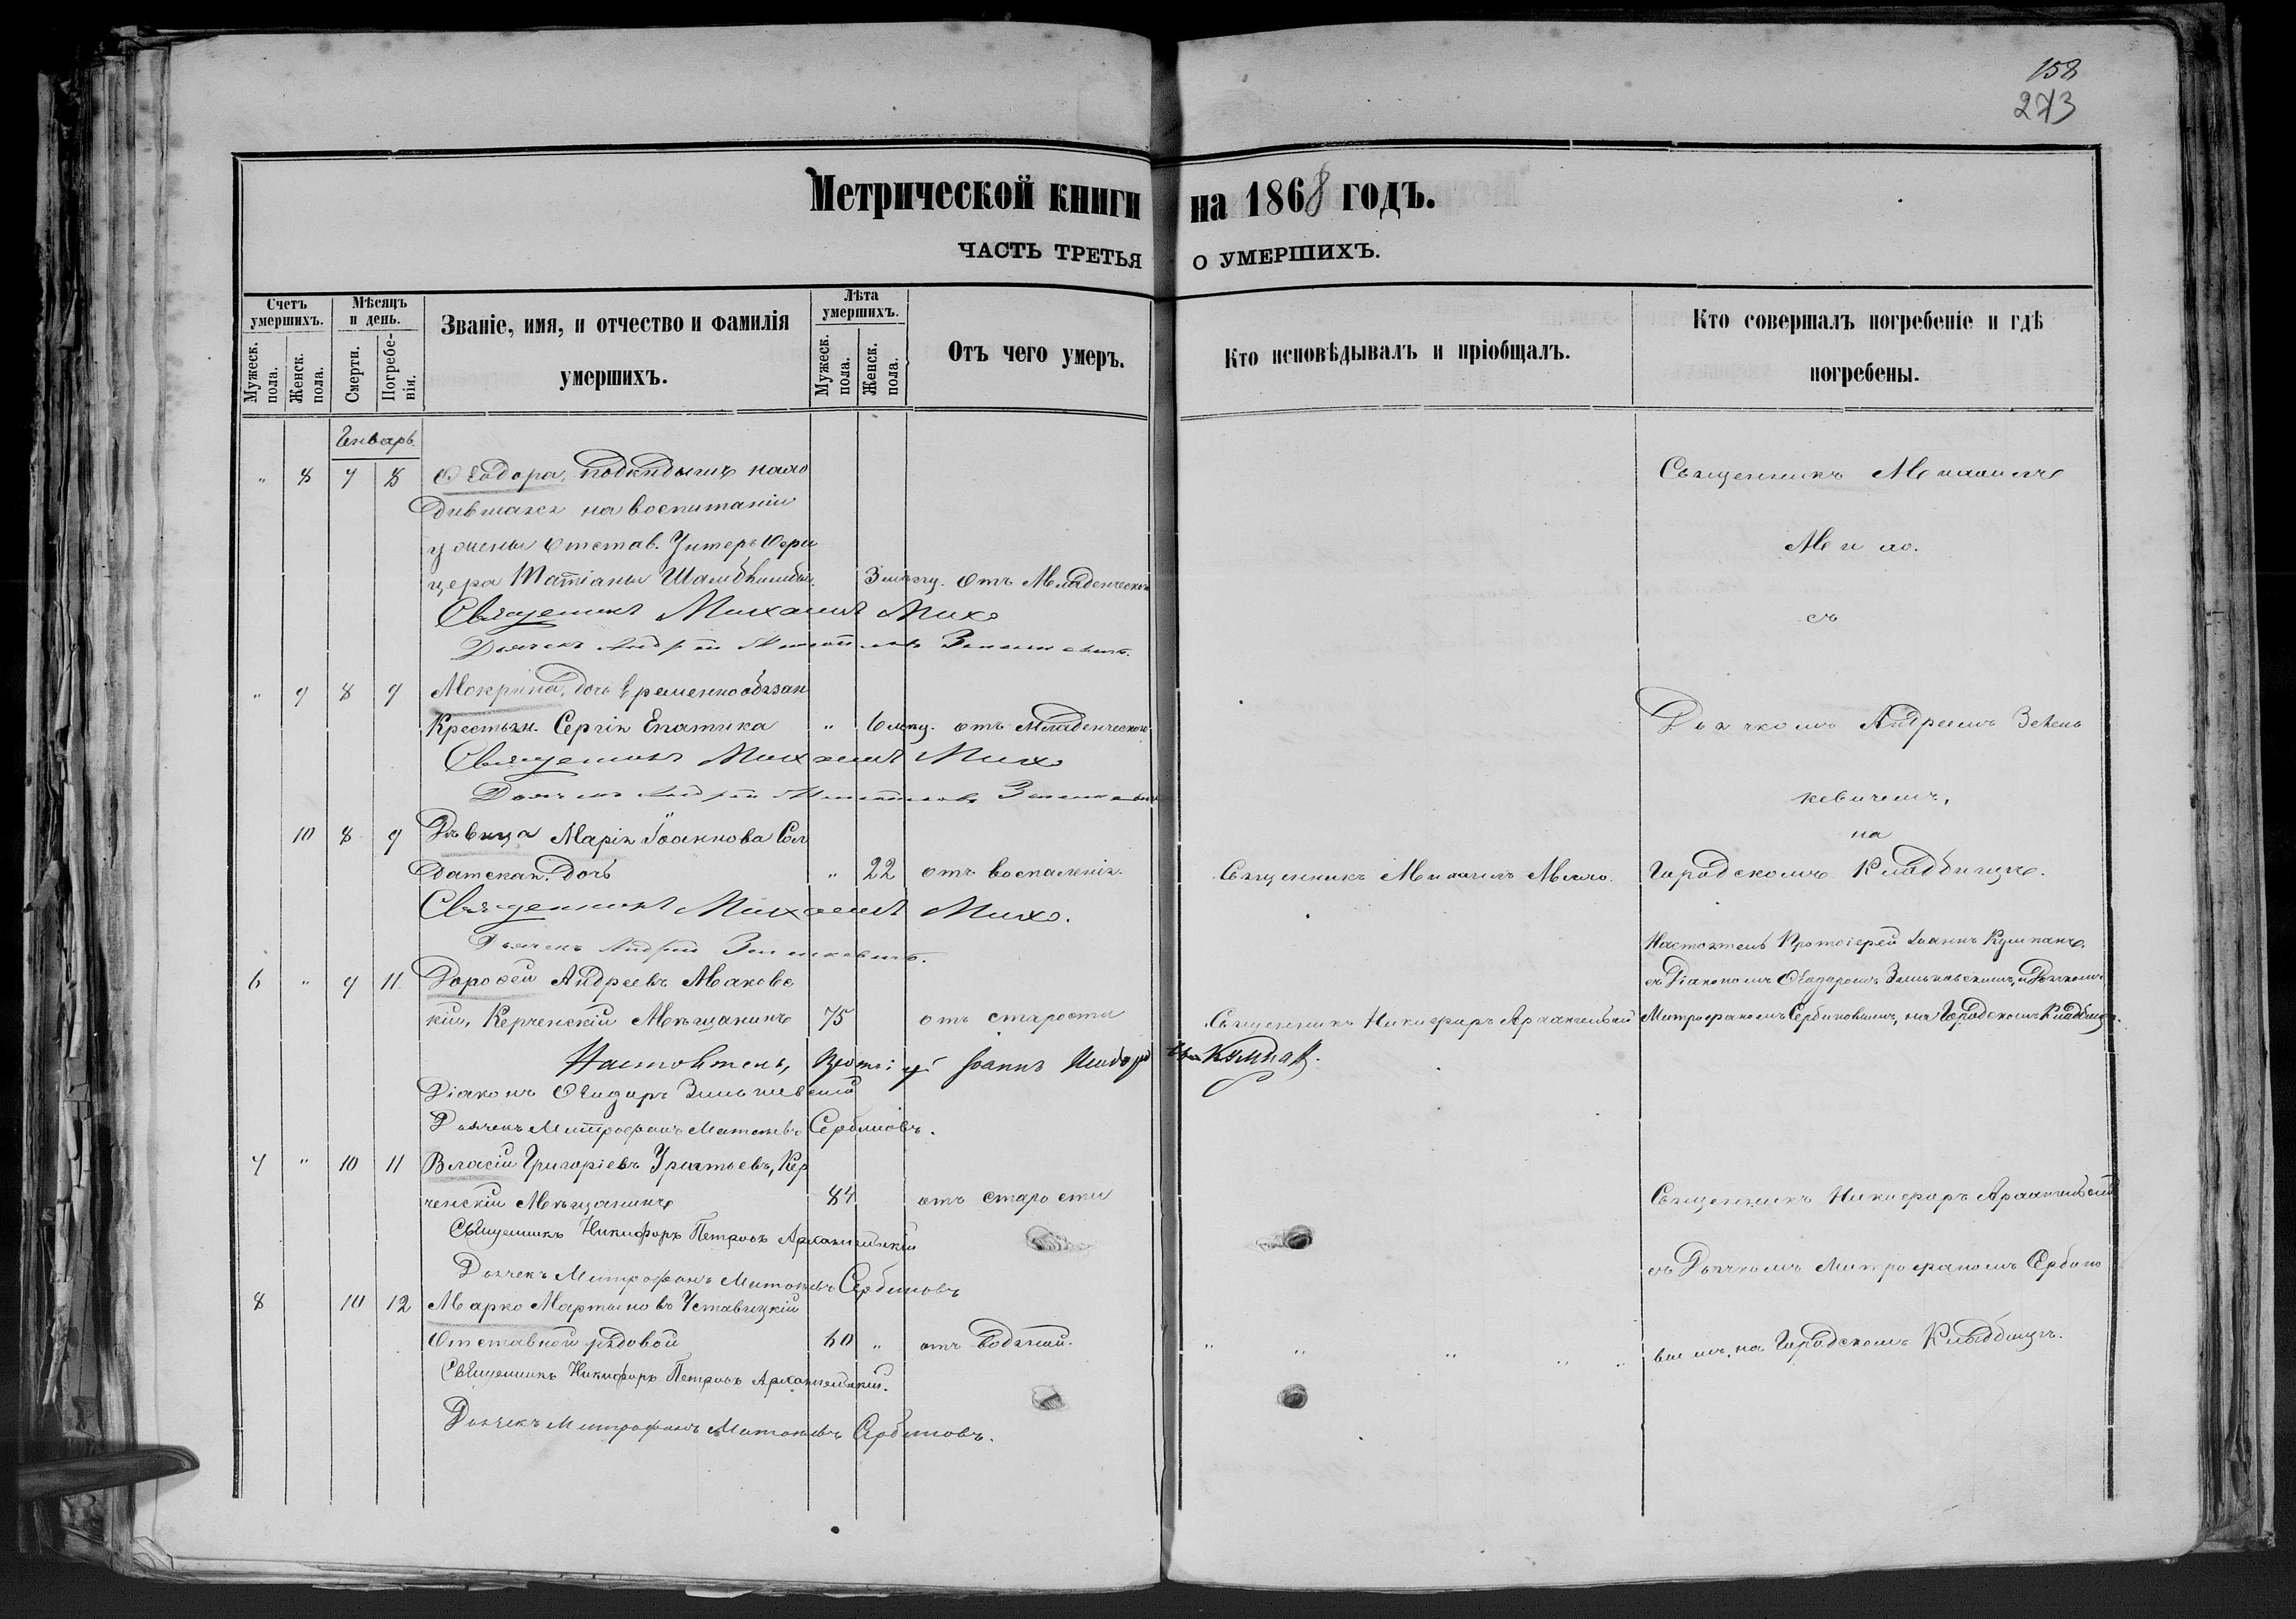 158
273
Метрической книги на 1868 годъ.
ЧАСТЬ ТРЕТЬЯ О УМЕРШИХЪ.
Счетъ умершихъ.
Мужеск. пола.
Женск. пола.
Мѣсяцъ и день.
Смерти.
Погребенія.
Званіе, имя, и отчество и фамилія
умершихъ.
Лѣта умершихъ.
Мужеск. пола.
Женск. пола.
Отъ чего умеръ.
Кто исповѣдывалъ и пріобщалъ.
Кто совершалъ погребеніе и гдѣ
погребены.
Генварь
„ 8 7 8 Ѳеодора, подкидышъ нахо Священникъ Михаилъ
дившаяся на воспитаніи
у жены отстав. Унтеръ Офи Михо.
цера Татіаны 3 мѣсяц. отъ Младенческой
Священникъ Михаилъ Михо съ
Дьячекъ Андрей
„ 9 8 9 Мокрина, дочь временнообязан
Крестьян. Сергія Епатика „ 6 мѣсяц. отъ Младенческой Дьячкомъ Андреемъ Зелень
Священникъ Михаилъ Михо
Дьячекъ Андрей кевичемъ,
10 8 9 Дѣвица Марія Іоаннова Сол на
датская дочь „ 22 отъ воспаленія. Священникъ Михаилъ Михо. Городскомъ Кладбищѣ.
Священникъ Михаилъ Михо.
Дьячекъ Андрей Зеленкевичъ. Настоятель Протоіерей Іоаннъ Кумпанъ,
6 „ 9 11 Дороѳей Андреевъ Маковс съ Діакономъ Ѳеодоромъ Зеньковскимъ, и Дьячкомъ
кій, Керченскій Мѣщанинъ 75 отъ старости Священникъ Никифоръ Архангельскій Митрофаномъ Сербиновымъ, на Городскомъ Кладбищѣ.
Настоятель, Протоіерей Іоаннъ Кумпанъ.
Діаконъ Ѳеодоръ
Дьячекъ Митрофанъ Матвѣевъ Сербиновъ.
7 „ 10 11 Власій Григоріевъ Кер
ченскій Мѣщанинъ 84 отъ старости Священникъ Никифоръ Архангельскій
Священникъ Никифоръ Петровъ Архангельскій
Дьячекъ Митрофанъ Матвѣевъ Сербиновъ съ Дьячкомъ Митрофаномъ Сербино
8 10 12 Марко Мартыновъ Уставицкій
Отставной рядовой 60 „ отъ водяной. „ „ „ „ „ вымъ, на Городскомъ Кладбищѣ.
Священникъ Никифоръ Петровъ Архангельскій.
Дьячекъ Митрофанъ Матвѣевъ Сербиновъ.